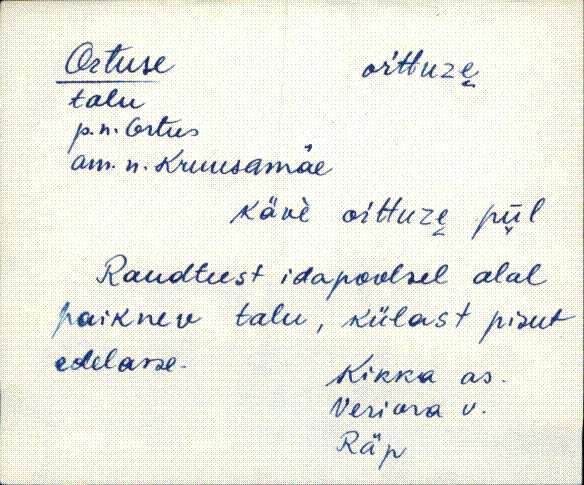 Ortuse oŕttuzę
talu
p.n. Ortus
am. n. Kruusamäe
kävè oŕttuzę pi̬i̬l
Raudteest idapoolsel alal
paiknev talu, külast pisut
edelasse.
Kikka as.
Veriora v.
Räp